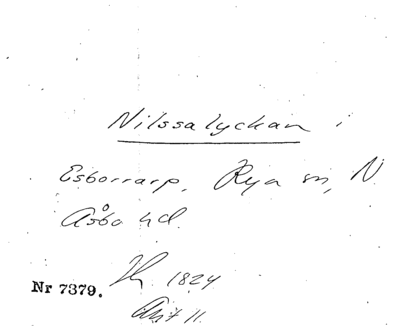 Nilssalyckan i
Esborrarp, Rya sn, N.
Åsbo hd.
1824
Nr 7379.